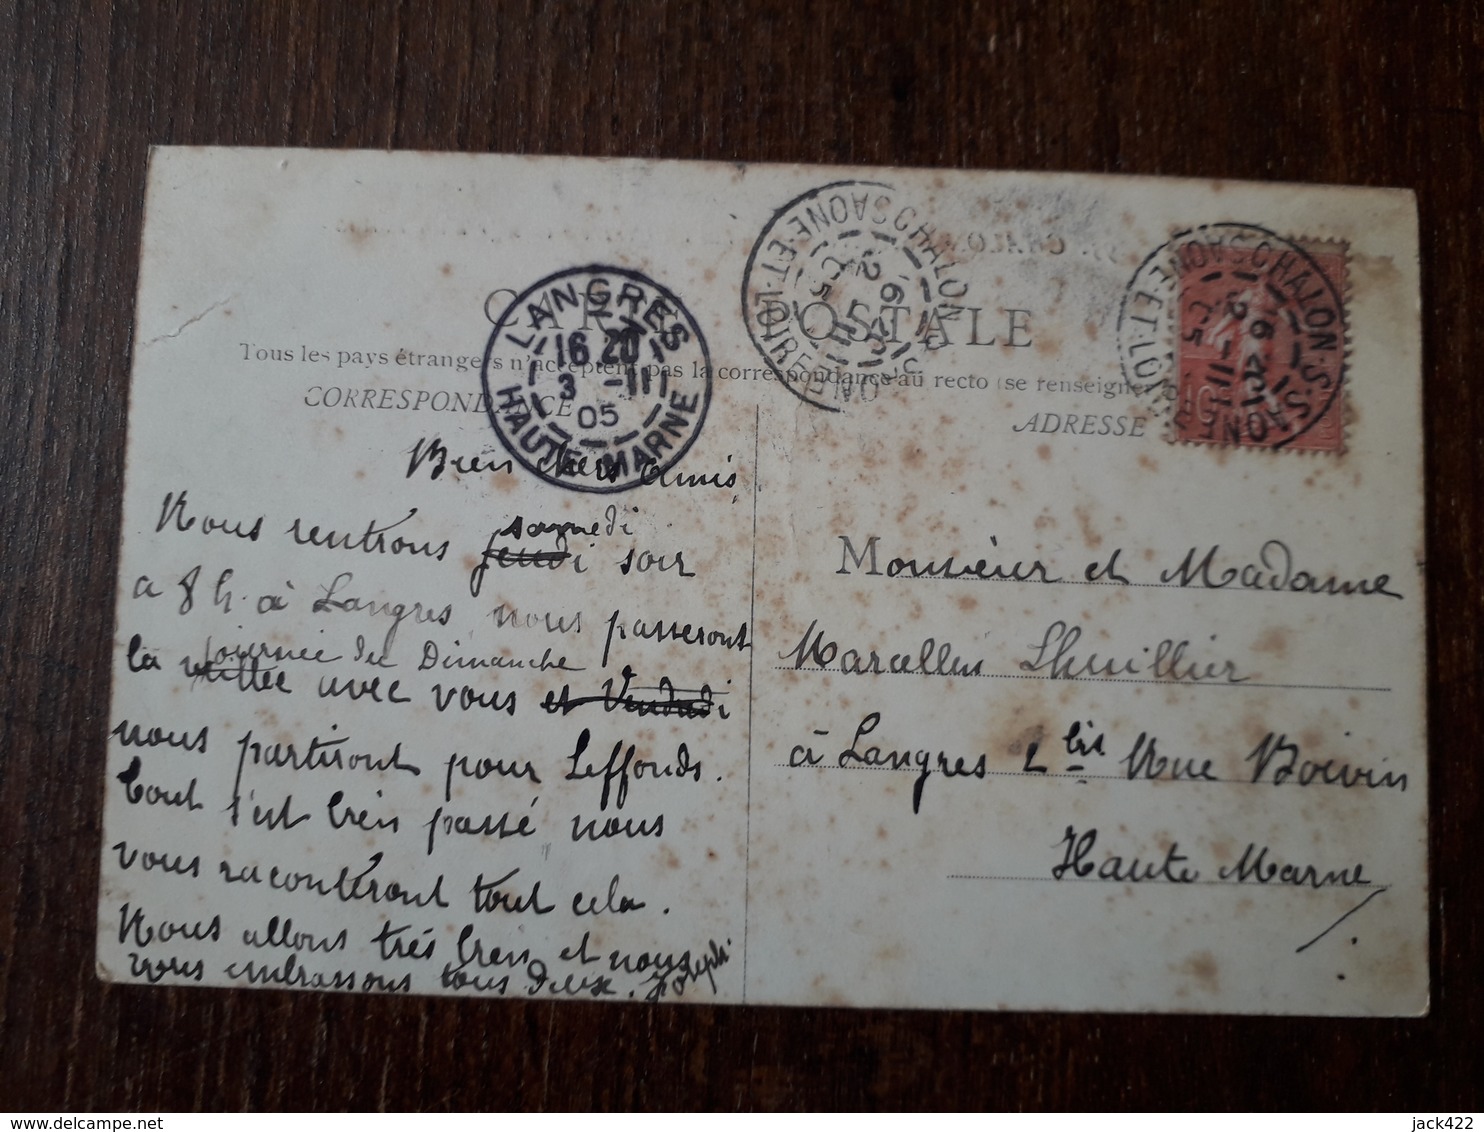 CARTE POSTALE
Tous les pays étrangers n'acceptent pas la correspondance au recto (se renseigner
CORRESPONDANCE
ADRESSE
LANGRES
16 20
3 -III
05
HAUTE-MARNE
CHALON-S-SAONE
16 20
2 -III
05
SAONE-ET-LOIRE
CHALON-S-SAONE
16 20
2 -III
05
SAONE-ET-LOIRE
10
Bien chers Amis,
Nous rentrons jeudi samedi soir
a 8 h. à Langres nous passeront
la veillee journée du Dimanche
avec vous et Vendredi
nous partiront pour Leffonds.
tout s'est bien passé nous
vous raconteront tout cela.
Nous allons très bien et nous
vous embrassons tous deux. Joseph
Monsieur et Madame
Marcellin Lhuillier
à Langres 2 bis Rue Boivin
Haute Marne
jack422